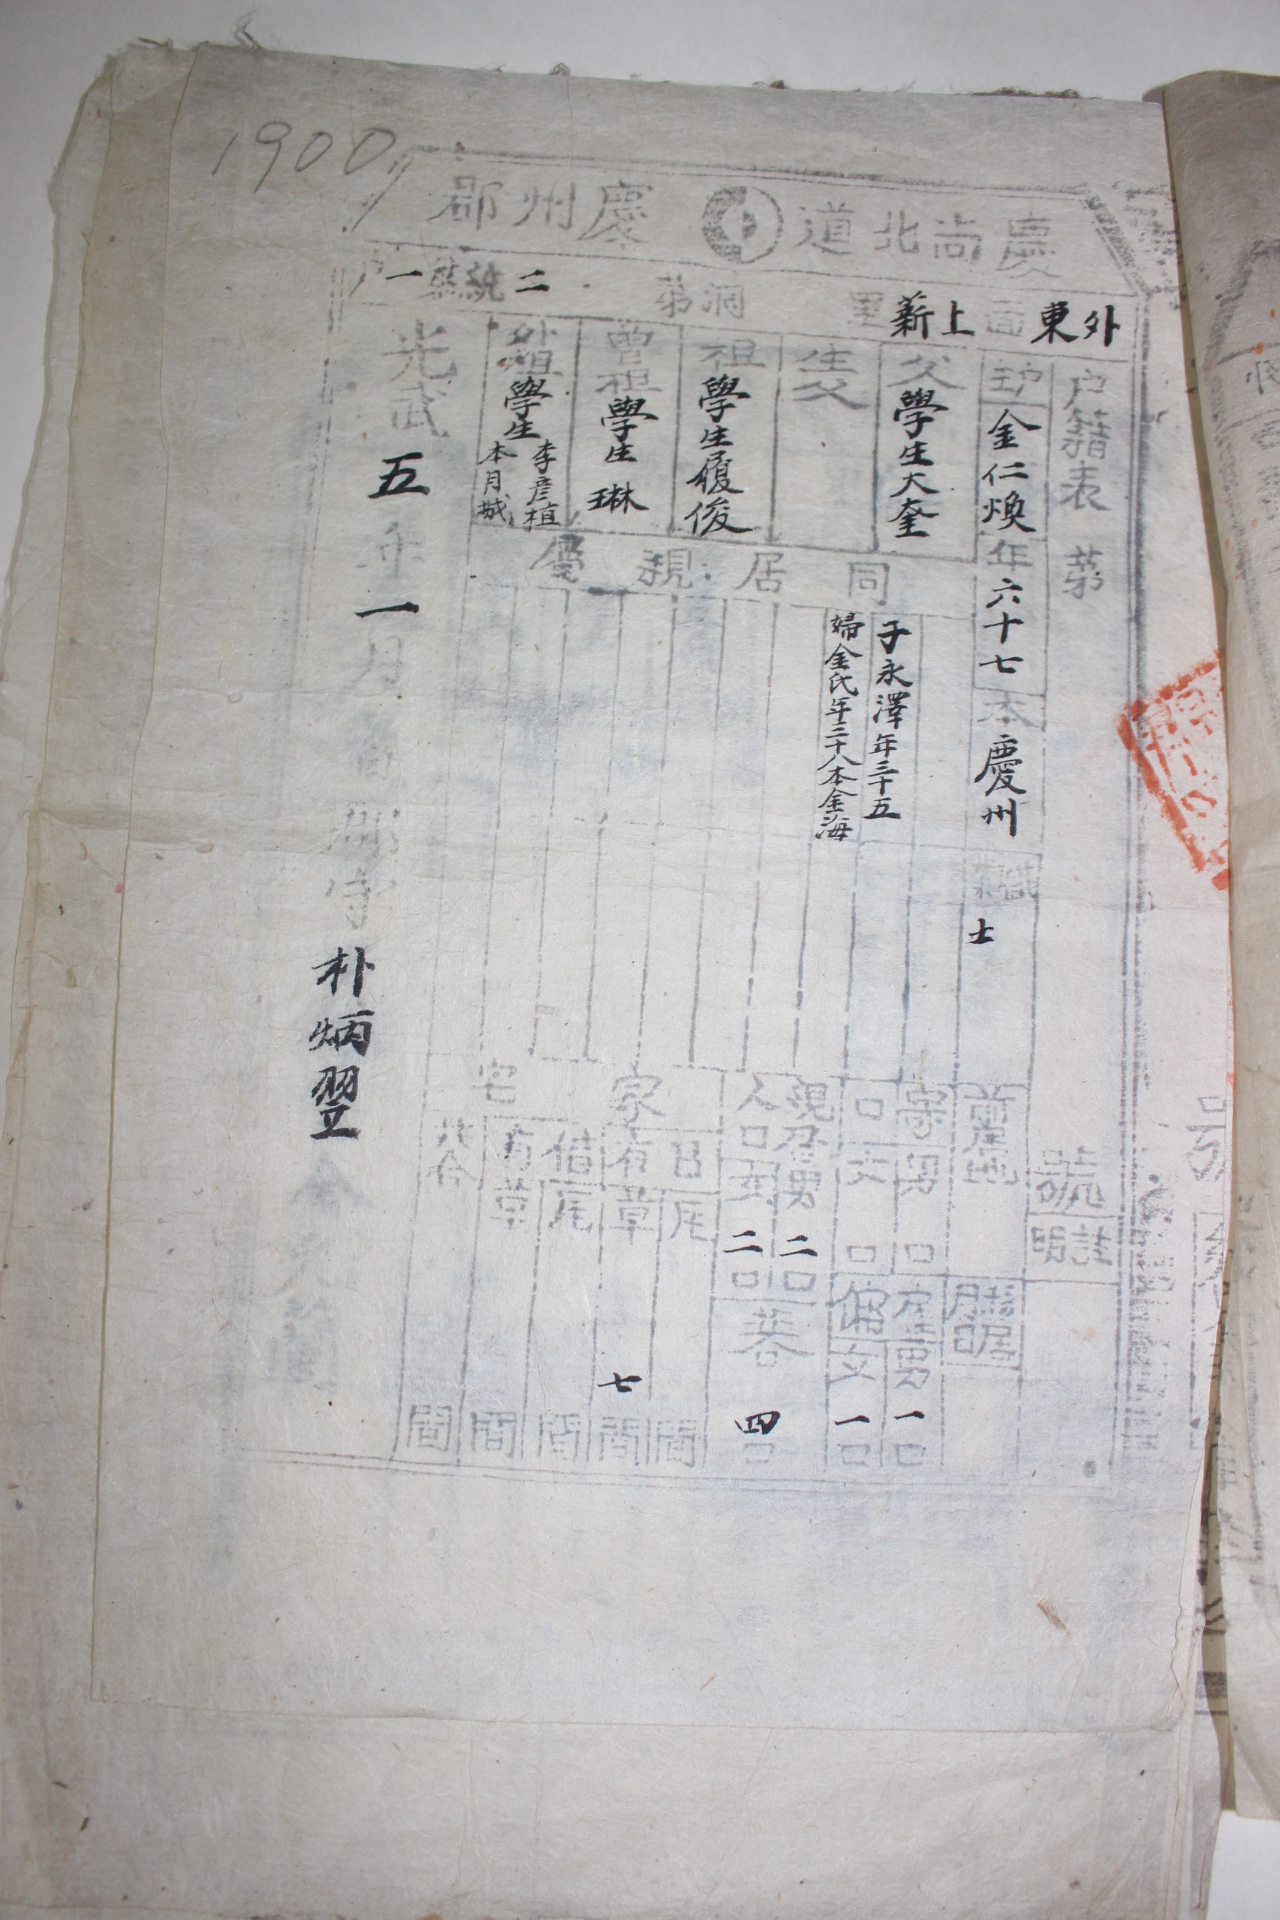 1900
慶尚北道 慶州郡
外東面 上薪里 洞第 二統第一戶
戶籍表 第 號
戶主 金仁煥 年六十七 本慶州 職業 士
父 學生大奎
生父
祖 學生履俊
曾祖 學生琳
外祖 學生李彦植 本月城
同居親屬
子永澤年三十五
婦金氏年三十八本金海
註明
舊居地
移居
寄口 男 口
女 口
雇傭 男 一口
女 一口
現存人口 男 二口
女 二口
共合 四口
家宅
自有 瓦 間
草 七間
借有 瓦 間
草 間
共合 間
光武五年一月 日
郡守朴炳翌